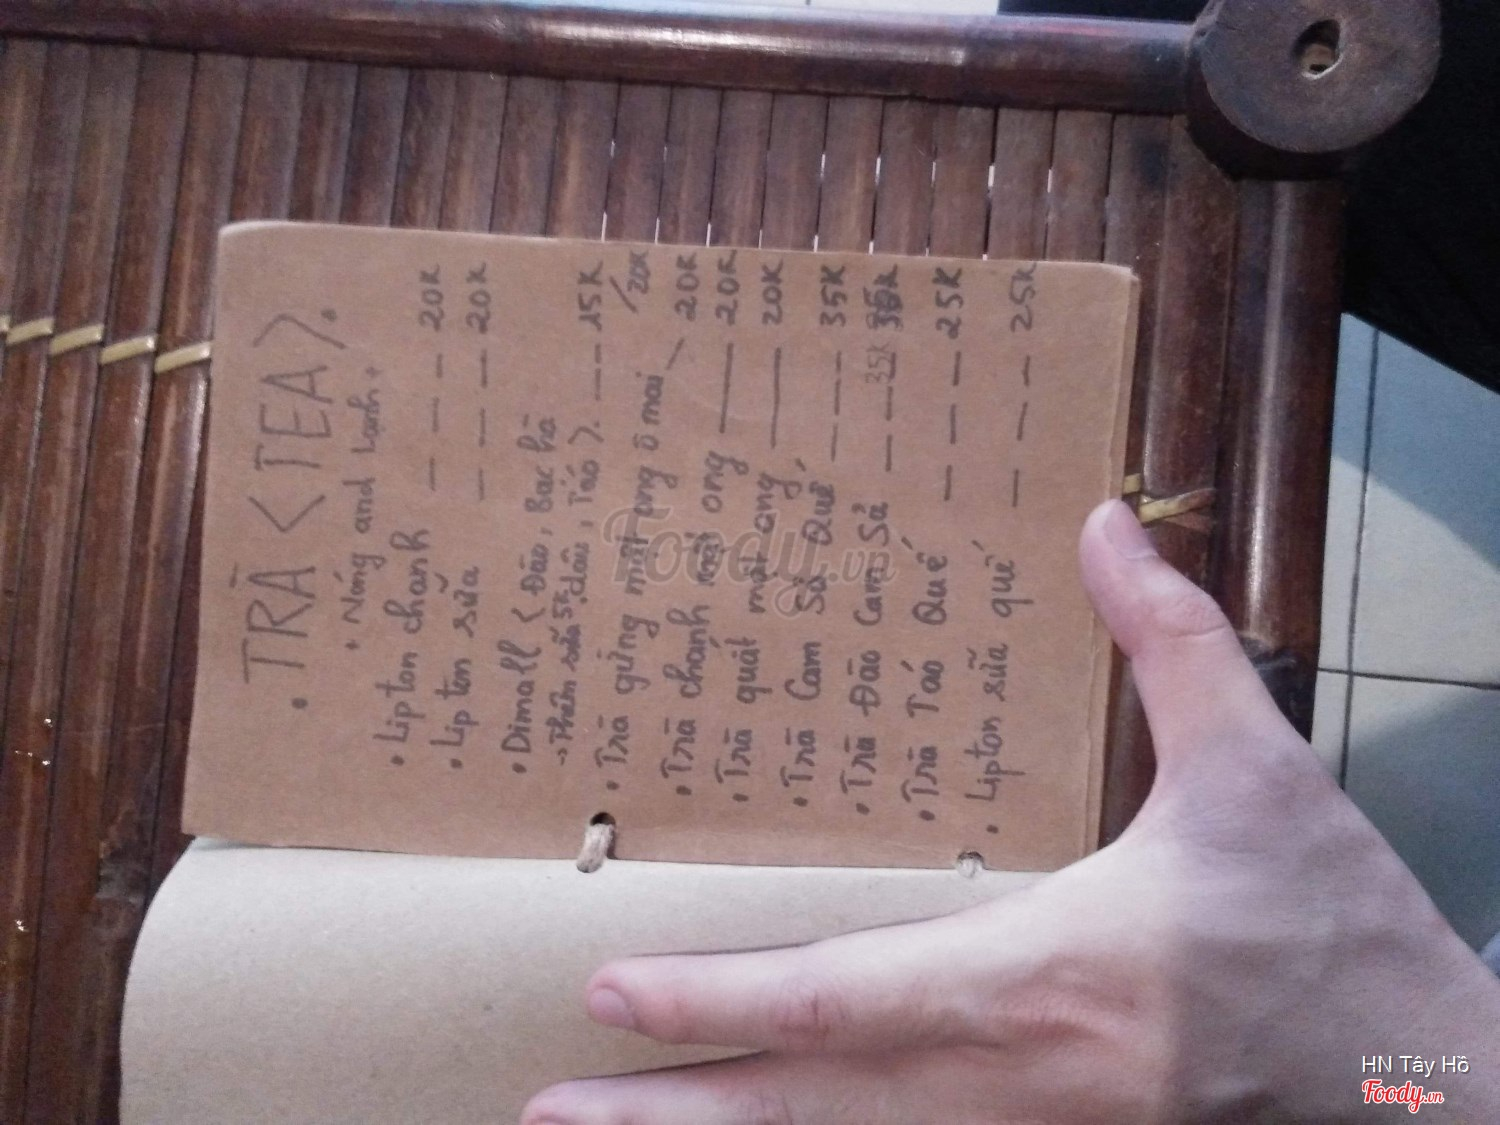 . TRÀ < TEA >.
+ Nóng and Lạnh +
• Lipton chanh — — — 20K
• Lipton sữa — — — 20K
• Dimall < Đào, Bạc hà
→ Thêm sữa 5K, dâu, Táo >. --- 15K
/20K
• Trà gừng mật ong ô mai — 20K
• Trà chanh mật ong —— 20K
• Trà quất mật ong —— 20K
• Trà Cam Sả Quế ---- 35K
• Trà Đào Cam Sả — — 35K
• Trà Táo Quế — — — 25K
• Lipton sữa quế — — — 25K
Foody.vn
HN Tây Hồ
Foody.vn